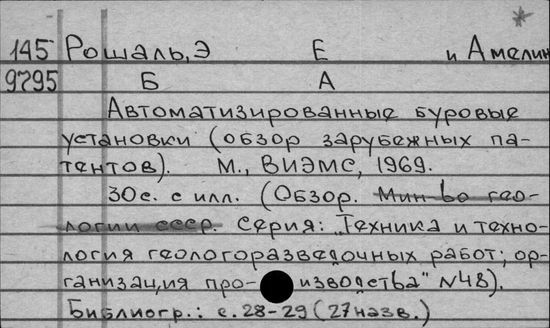 145 Рошаль, Э Е и Амелин
9795 Б А
Автоматизированные буровые
установки (обзор зарубежных па-
тентов). М., ВИЭМС, 1969.
30с. с илл. (Обзор. Мин-во гео-
логии ссср. Серия: "Техника и техно-
логия геологоразведочных работ; ор-
ганизация про- изводства" N48).
Библиогр.: с. 28-29 (27 назв.)